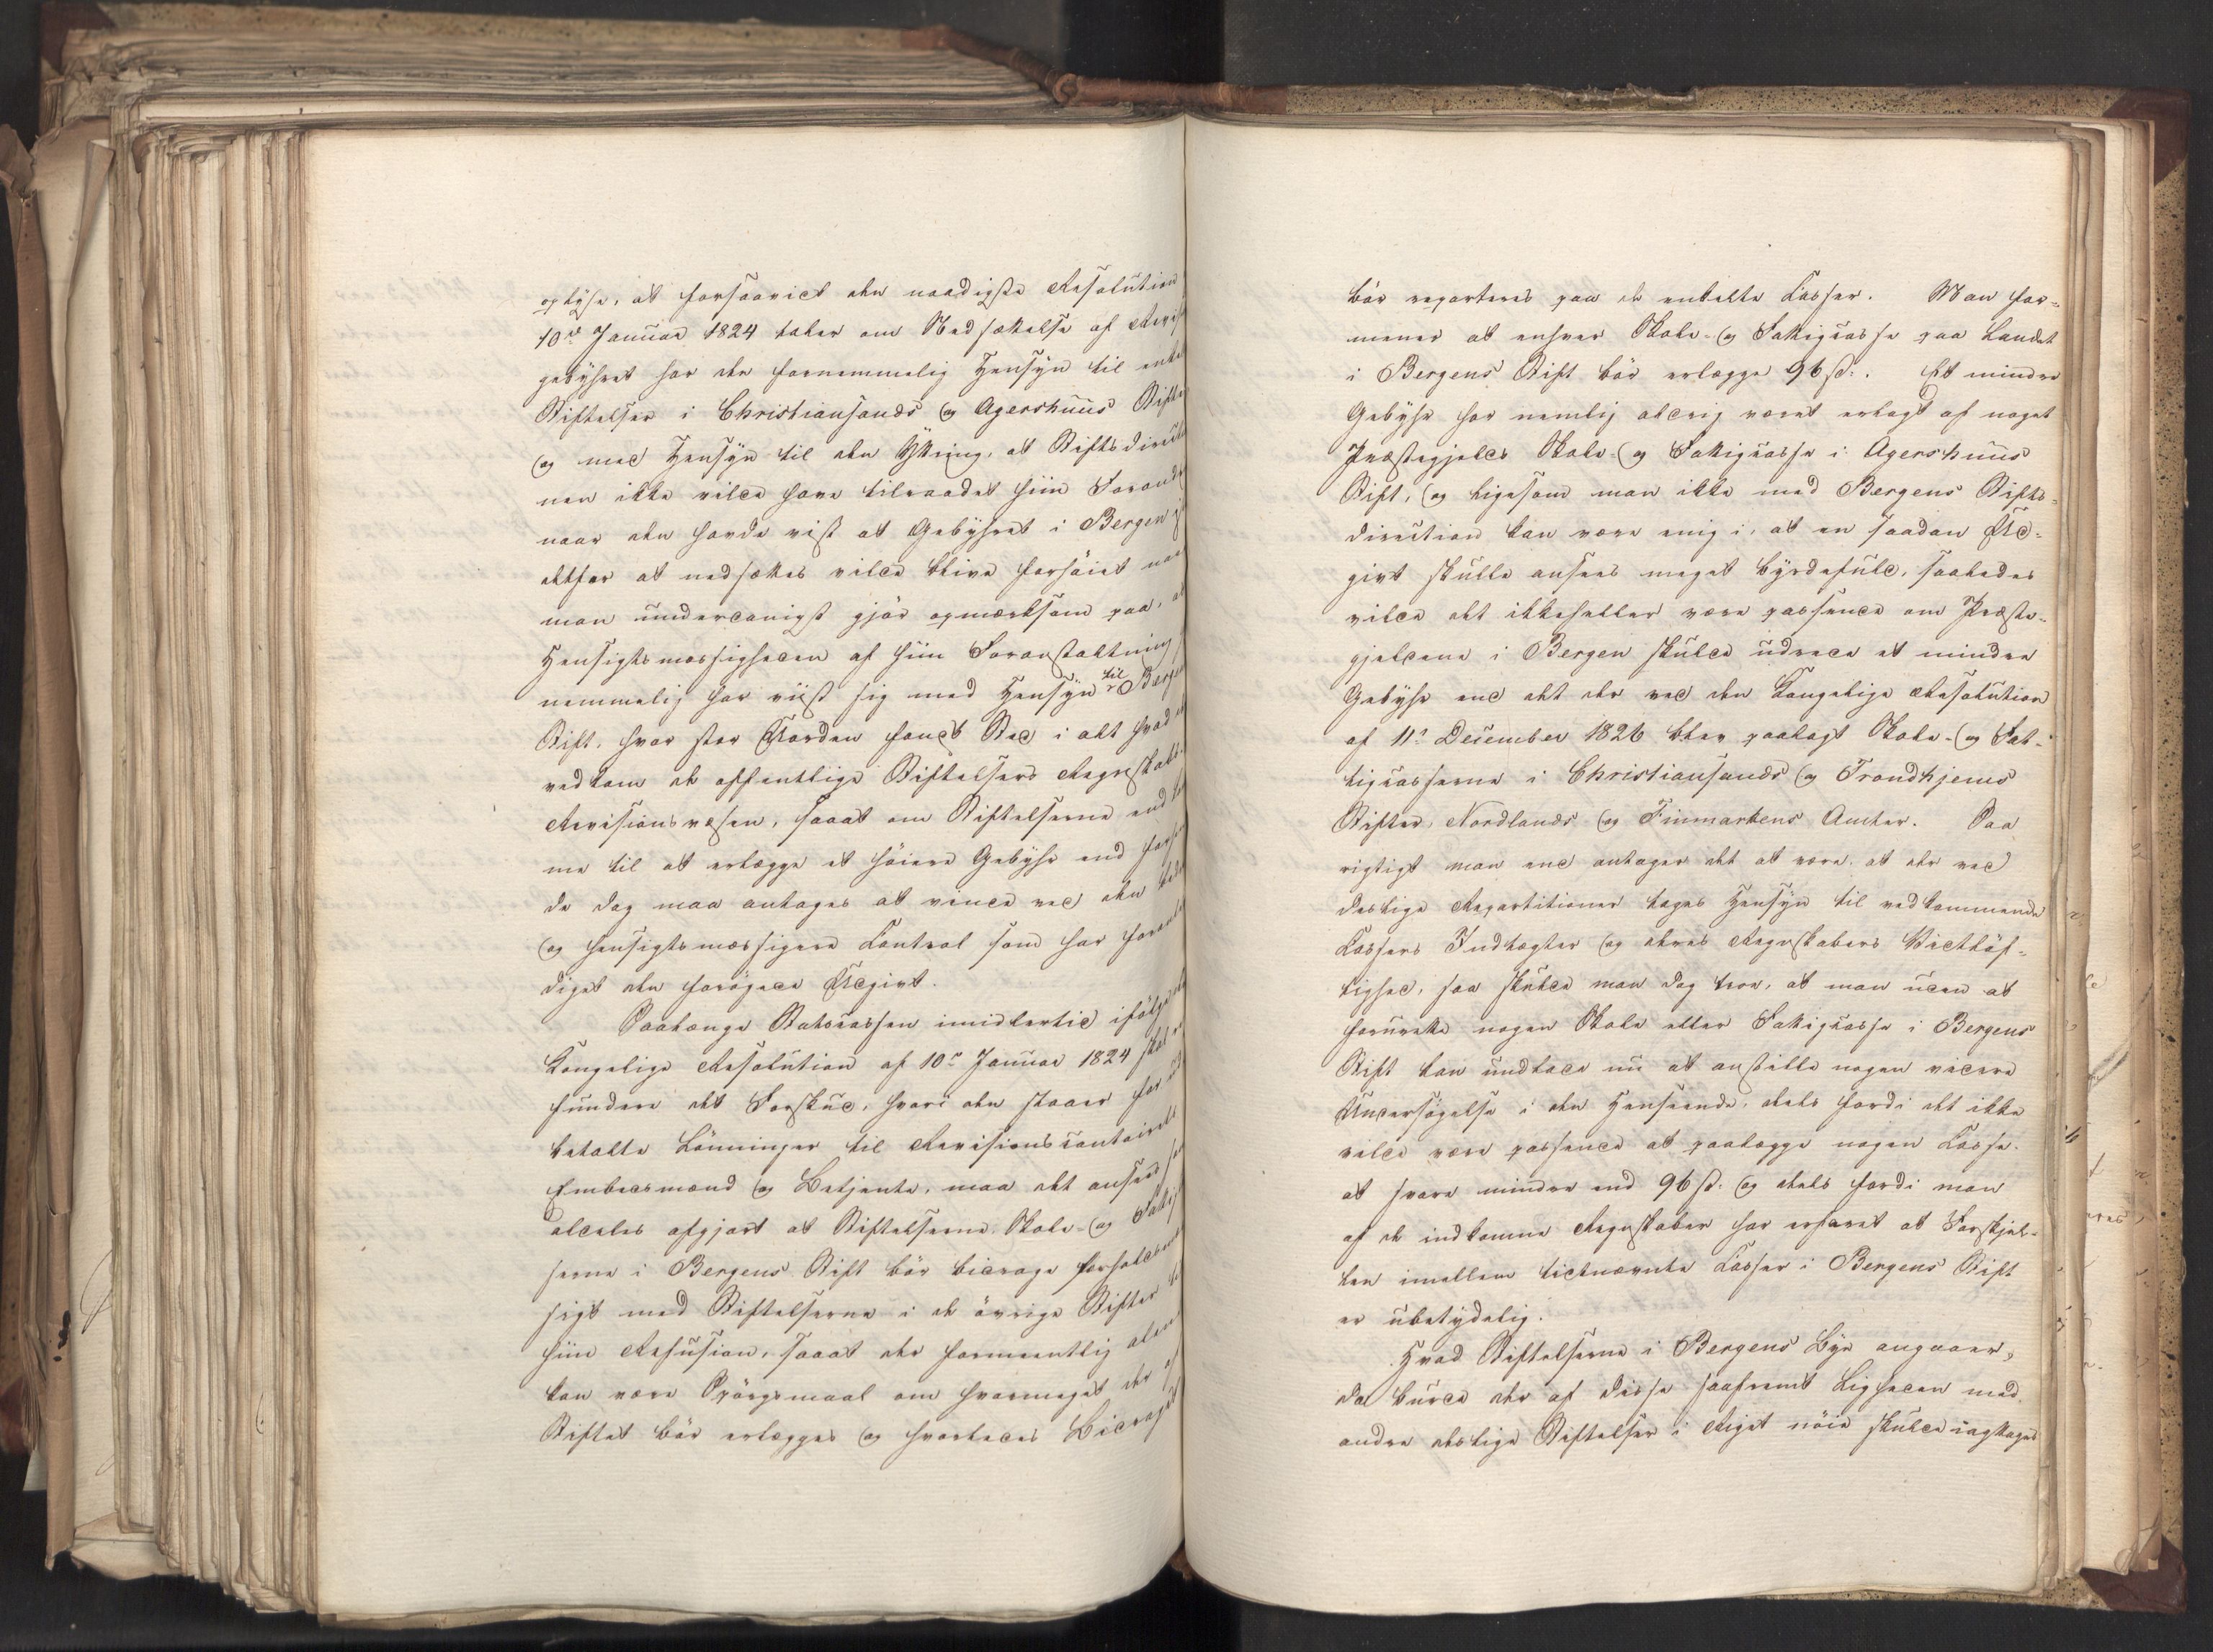 oplyse, at forsaavidt den naadigste Resolution
10de Januar 1824 taler om Nedsættelse af Revi
gebyhret har den fornemmelig Hensyn til enke
Stiftelser i Christiansands og Agershuus Stifter
og med Hensyn til den Yttring, at Stiftsdirecti
nen ikke vilde have tilraadet hiin Forand
naar den havde vist at Gebyhret i Bergen
istedfor at nedsættes vilde blive forhøiet maa
man underdanigst gjør opmærksom paa, at
Hensigtsmæssigheden af hiin Foranstaltning
nemmelig har viist sig med Hensyn til Berge
Stift, hvor stor Uorden fandt Sted i alt hvad
vedkom de offentlige Stiftelsers Regnskabs-
Revisionsvæsen, saaat om Stiftelserne end
me til at erlægge et høiere Gebyhr end før
de dog maa antages at vinde ved den bedre
og hensigtsmæssigere Control som har foran
diget den forøgede Udgivt.
Saalænge Statscassen imidlertid ifølge
Kongelige Resolution af 10de Januar 1824 skal re
fundere det Forskud, hvori den staaer for ud
betalte Lønninger til Revisionscontoirets
Embedsmænd og Betjente, maa det ansees som
aldeles afgjort at Stiftelserne, Skole- og Fattig
serne i Bergens Stift bør bidrage forholdsmæs
sigt med Stiftelserne i de øvrige Stifter til
hiin Refusion, saaat der formeentlig alene
kan være Spørgsmaal om hvormeget der af
Stiftet bør erlægges og hvorledes Bidraget
bør reparteres paa de enkelte Casser. Man for-
mener at enhver Skole- og Fattigcasse paa Landet
i Bergens Stift bør erlægge 96 ß. Et mindre
Gebyhr har nemlig aldrig været erlagt af noget
Præstegjelds Skole- og Fattigcasse i Agershuus
Stift, og ligesom man ikke med Bergens Stifts-
direction kan være enig i, at en saadan Ud-
givt skulle ansees meget byrdefuld, saaledes
vilde det ikkeheller være passende om Præste-
gjeldene i Bergen skulde udrede et mindre
Gebyhr end det der ved den Kongelige Resolution
af 11te December 1826 blev paalagt Skole- og Fat-
tigcasserne i Christiansands og Trondhjems
Stifter, Nordlands og Finmarkens Amter. Saa
rigtigt man end antager det at være, at der ved
deslige Repartitioner tages Hensyn til vedkommende
Cassers Indtægter og deres Regnskabers Vidtløf-
tighed, saa skulde man dog troe, at man uden at
forurette nogen Skole eller Fattigcasse i Bergens
Stift kan undlade nu at anstille nogen videre
Undersøgelse i den Henseende, deels fordi det ikke
vilde være passende at paalægge nogen Casse
at svare mindre end 96 ß. og deels fordi man
af de indkomne Regnskaber har erfaret at Forskjel-
len imellem bidtnævnte Casser i Bergens Stift
er ubetydelig.
Hvad Stiftelserne i Bergens Bye angaaer,
da burde der af disse saafremt Ligheden med
andre deslige Stiftelser i Riget nøie skulde iagttages